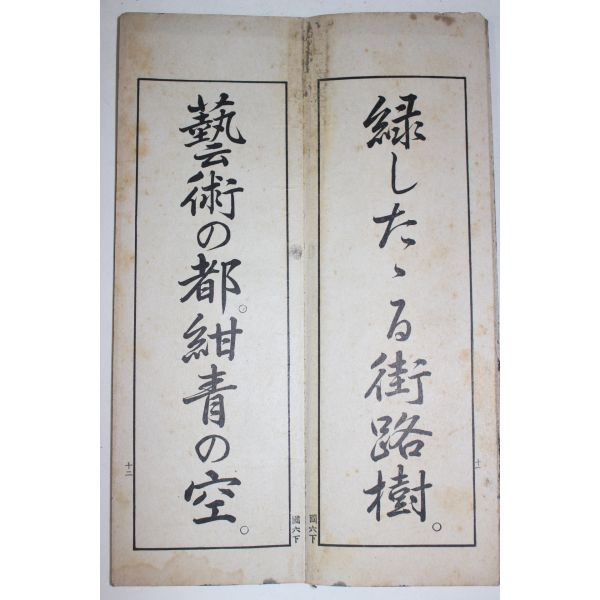 緑したゝる街路樹。
十一
國六下
藝術の都。紺青の空。
十二
國六下